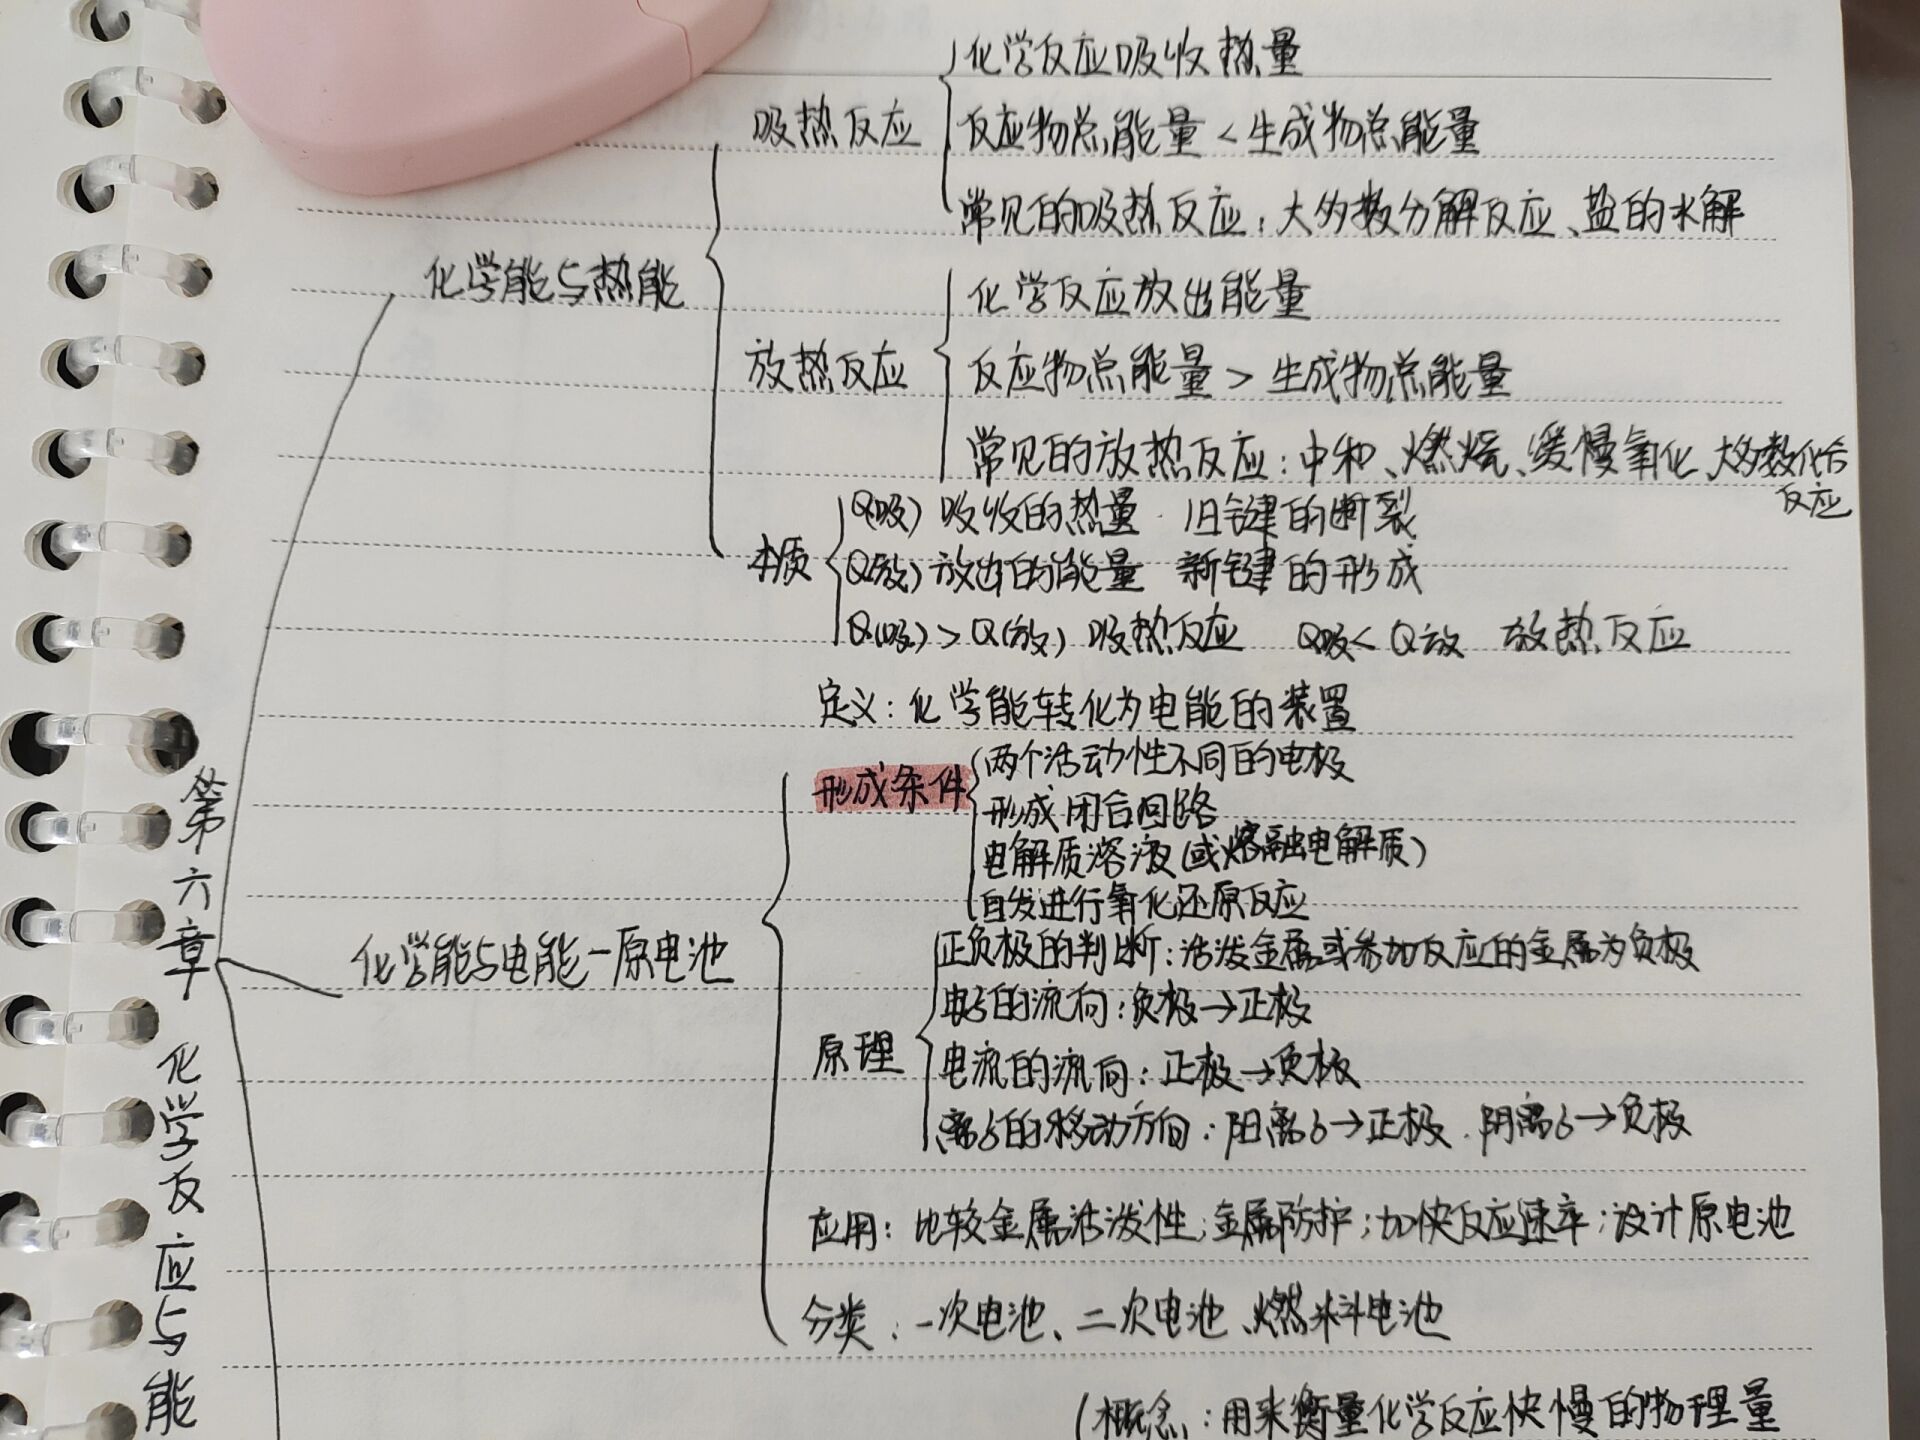 化学反应吸收热量
吸热反应
反应物总能量<生成物总能量
常见的吸热反应：大多数分解反应、盐的水解
化学能与热能
化学反应放出能量
放热反应
反应物总能量>生成物总能量
常见的放热反应：中和、燃烧、缓慢氧化、大多数化合
反应
本质
Q(吸) 吸收的热量 旧键的断裂
Q(放) 放出的能量 新键的形成
Q(吸)>Q(放) 吸热反应 Q吸<Q放 放热反应
定义：化学能转化为电能的装置
形成条件
两个活动性不同的电极
形成闭合回路
电解质溶液(或熔融电解质)
自发进行氧化还原反应
第六章 化学反应与能
化学能与电能-原电池
正负极的判断：活泼金属或参加反应的金属为负极
电子的流向：负极→正极
原理
电流的流向：正极→负极
离子的移动方向：阳离子→正极．阴离子→负极
应用：比较金属活泼性；金属防护；加快反应速率；设计原电池
分类：一次电池、二次电池、燃料电池
概念：用来衡量化学反应快慢的物理量